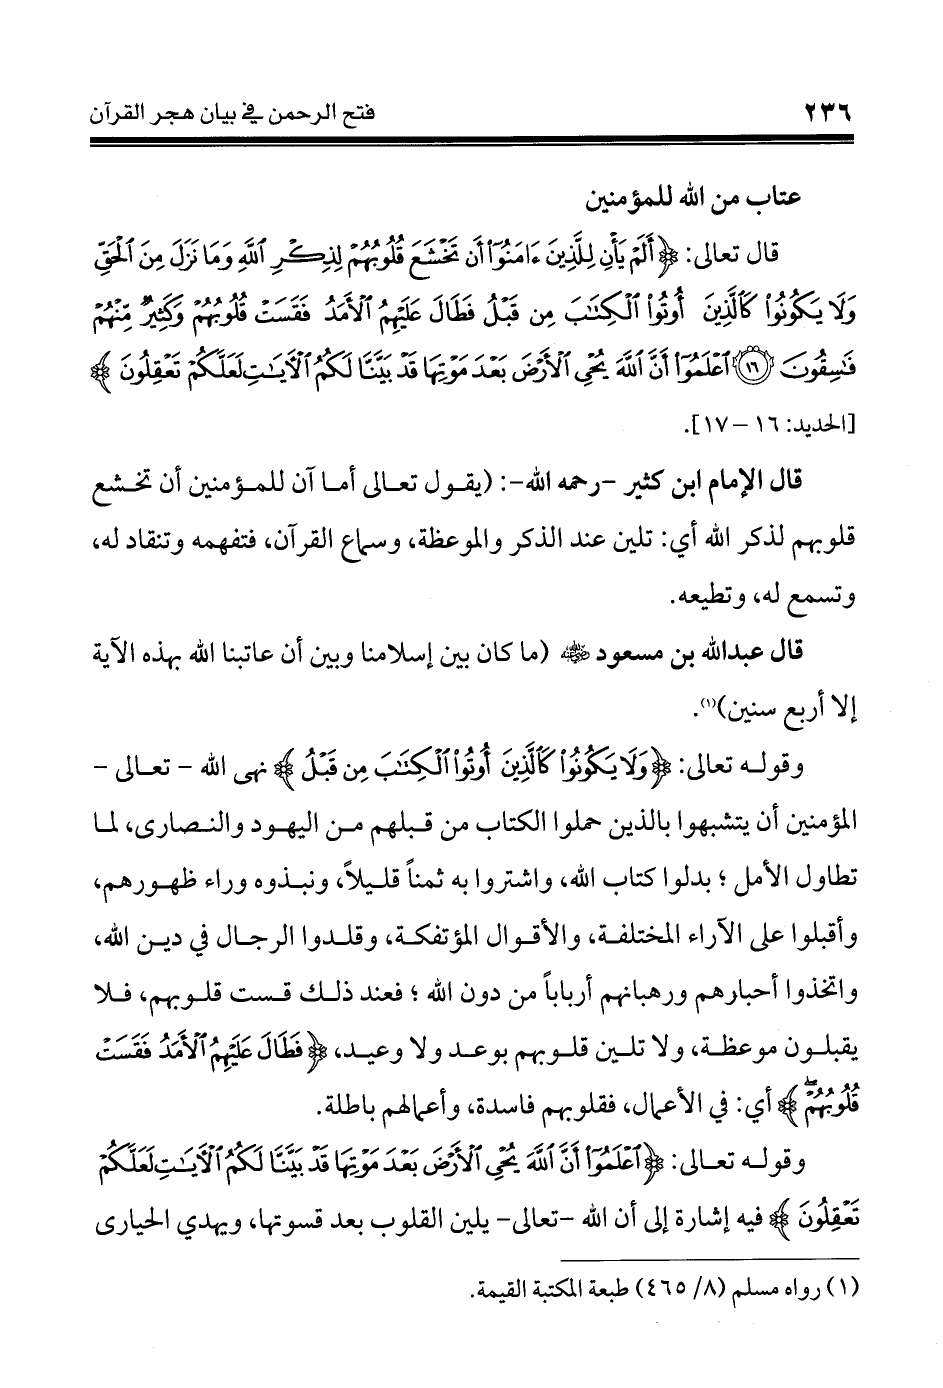 ٢٣٦ فتح الرحمن في بيان هجر القرآن
عتاب من الله للمؤمنين
قال تعالى: ﴿أَلَمْ يَأْنِ لِلَّذِينَ ءَامَنُوٓا۟ أَن تَخْشَعَ قُلُوبُهُمْ لِذِكْرِ ٱللَّهِ وَمَا نَزَلَ مِنَ ٱلْحَقِّ
وَلَا يَكُونُوا۟ كَٱلَّذِينَ أُوتُوا۟ ٱلْكِتَٰبَ مِن قَبْلُ فَطَالَ عَلَيْهِمُ ٱلْأَمَدُ فَقَسَتْ قُلُوبُهُمْ ۖ وَكَثِيرٌ مِّنْهُمْ
فَٰسِقُونَ ١٦ ٱعْلَمُوٓا۟ أَنَّ ٱللَّهَ يُحْىِ ٱلْأَرْضَ بَعْدَ مَوْتِهَا قَدْ بَيَّنَّا لَكُمُ ٱلْءَايَٰتِ لَعَلَّكُمْ تَعْقِلُونَ﴾
[الحديد: ١٦ – ١٧].
قال الإمام ابن كثير -رحمه الله-: (يقول تعالى أما آن للمؤمنين أن تخشع
قلوبهم لذكر الله أي: تلين عند الذكر والموعظة، وسماع القرآن، فتفهمه وتنقاد له،
وتسمع له، وتطيعه.
قال عبدالله بن مسعود رضي الله عنه (ما كان بين إسلامنا وبين أن عاتبنا الله بهذه الآية
إلا أربع سنين)(١).
وقوله تعالى: ﴿وَلَا يَكُونُوا۟ كَٱلَّذِينَ أُوتُوا۟ ٱلْكِتَٰبَ مِن قَبْلُ﴾ نهى الله – تعالى –
المؤمنين أن يتشبهوا بالذين حملوا الكتاب من قبلهم من اليهود والنصارى، لما
تطاول الأمل ؛ بدلوا كتاب الله، واشتروا به ثمناً قليلاً، ونبذوه وراء ظهورهم،
وأقبلوا على الآراء المختلفة، والأقوال المؤتفكة، وقلدوا الرجال في دين الله،
واتخذوا أحبارهم ورهبانهم أرباباً من دون الله ؛ فعند ذلك قست قلوبهم، فلا
يقبلون موعظة، ولا تلين قلوبهم بوعد ولا وعيد، ﴿فَطَالَ عَلَيْهِمُ ٱلْأَمَدُ فَقَسَتْ
قُلُوبُهُمْ ۖ﴾ أي: في الأعمال، فقلوبهم فاسدة، وأعمالهم باطلة.
وقوله تعالى: ﴿ٱعْلَمُوٓا۟ أَنَّ ٱللَّهَ يُحْىِ ٱلْأَرْضَ بَعْدَ مَوْتِهَا قَدْ بَيَّنَّا لَكُمُ ٱلْءَايَٰتِ لَعَلَّكُمْ
تَعْقِلُونَ﴾ فيه إشارة إلى أن الله -تعالى- يلين القلوب بعد قسوتها، ويهدي الحيارى
(١) رواه مسلم (٨/ ٤٦٥) طبعة المكتبة القيمة.